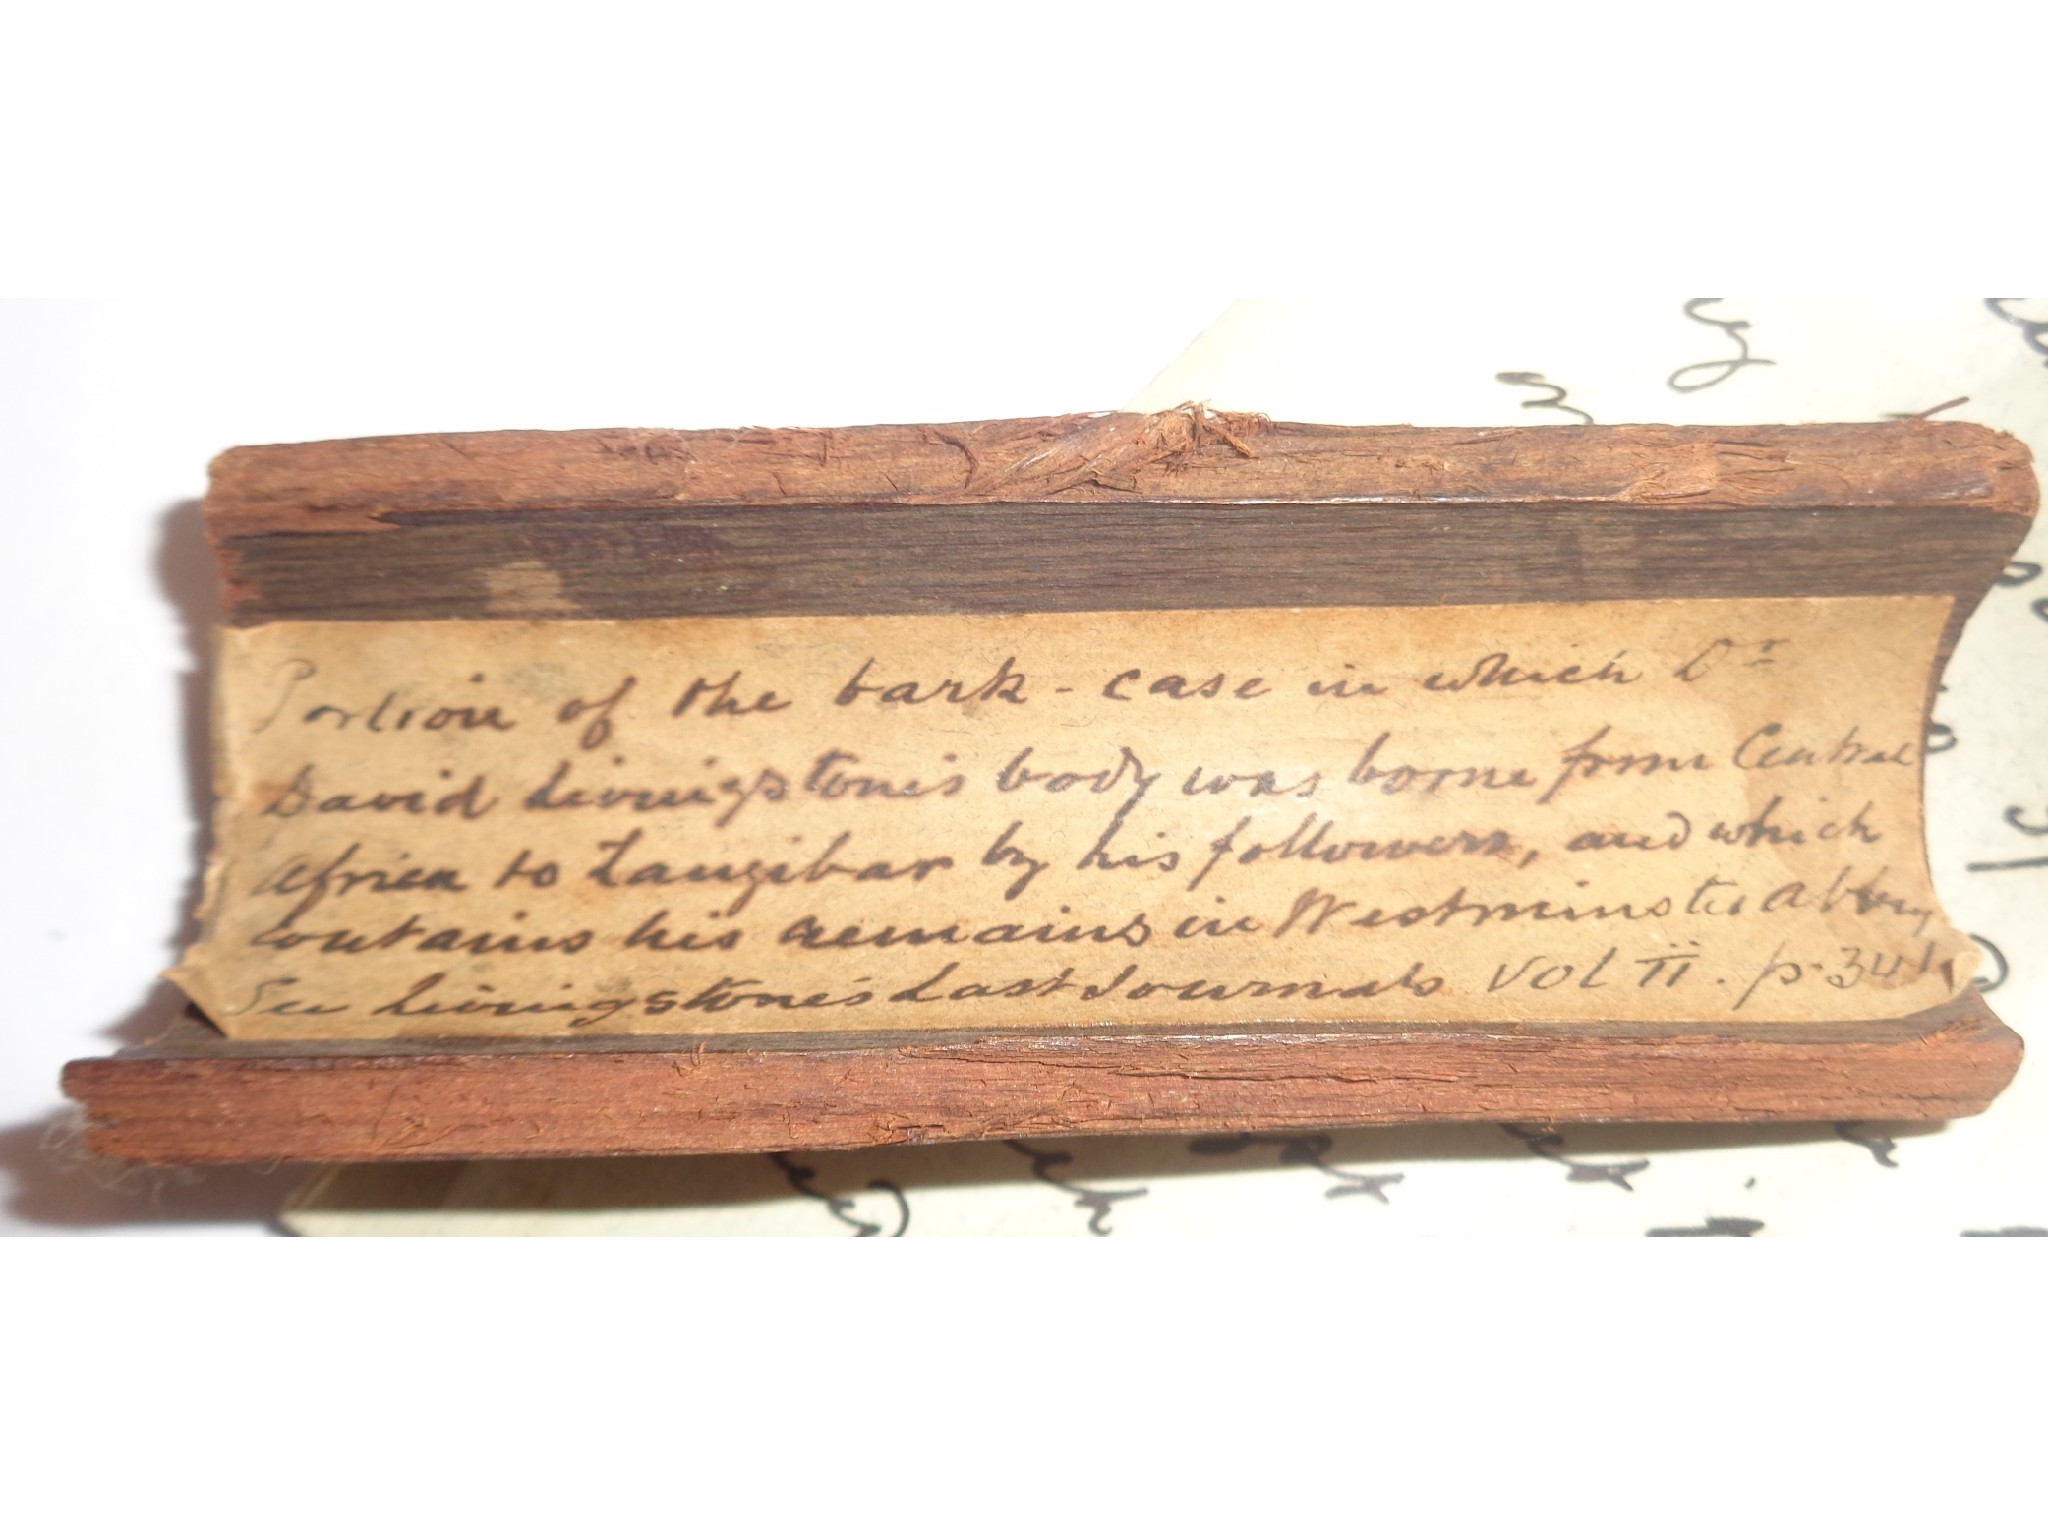 Portion of the bark-case in which Dr
David Livingstone's body was borne from Central
Africa to Zanzibar by his followers, and which
contains his remains in Westminster Abbey
See Livingstone's Last Journals Vol II. p. 341